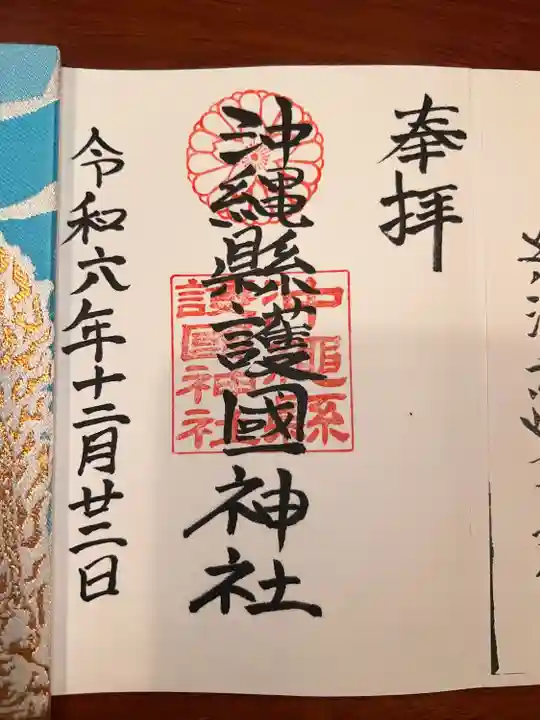 奉拝
沖縄縣護國神社
沖縄縣
護国神社
令和六年十二月廿二日